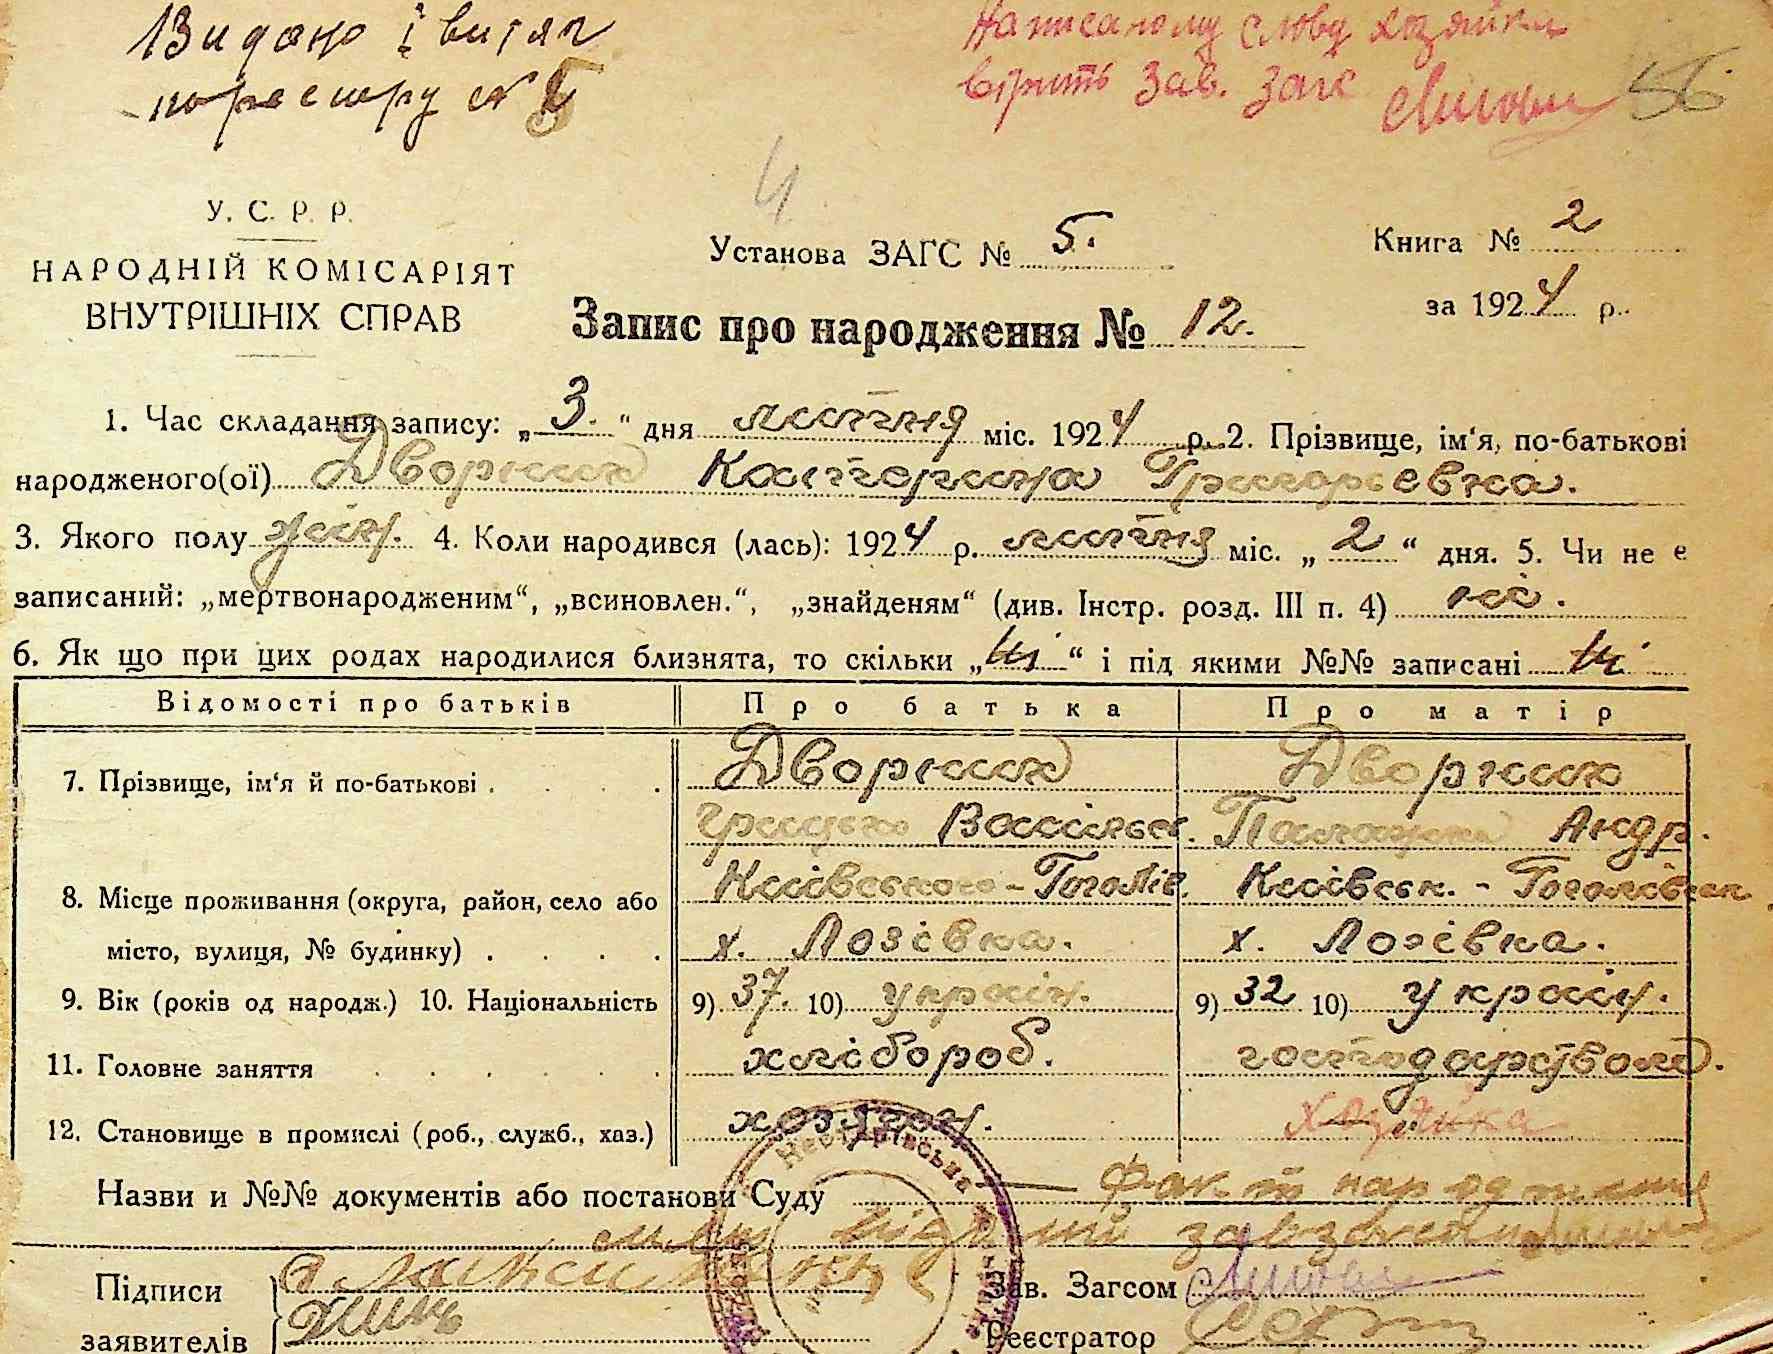 Видано і витяг
по реєстру №
Написаному слову хозяйка
вірить Зав. Загс
56
4
У. С. Р. Р.
НАРОДНІЙ КОМІСАРІЯТ
ВНУТРІШНІХ СПРАВ
Установа ЗАГС № 5.
Книга № 2
за 1924 р.
Запис про народження № 12.
1. Час складання запису: „ 3. “ дня липня міс. 1924 р. 2. Прізвище, ім‘я, по-батькові
народженого(ої) Дворник Катерина Григорьевна.
3. Якого полу жін. 4. Коли народився (лась): 1924 р. липня міс. „ 2 “ дня. 5. Чи не е
записаний: „мертвонародженим“, „всиновлен.“, „знайденям“ (див. Інстр. розд. III п. 4) ні.
6. Як що при цих родах народилися близнята, то скільки „ ні “ і під якими №№ записані ні
Відомості про батьків Про батька Про матір
7. Прізвище, ім‘я й по-батькові . Дворник Дворник
Грицько Васильев. Палажка Андр.
8. Місце проживання (округа, район, село або Київського - Гоголів. Київськ. - Гоголівськ.
місто, вулиця, № будинку) . х. Лозівка. х. Лозівка.
9. Вік (років од народж.) 10. Національність 9) 37. 10) україн. 9) 32 10) україн.
11. Головне заняття хлібороб. господарством.
12. Становище в промислі (роб., служб., хаз.) хозяїн. хозяйка
Назви и №№ документів або постанови Суду — Факт народження
Підписи
Зав. Загсом
заявителів
Реєстратор